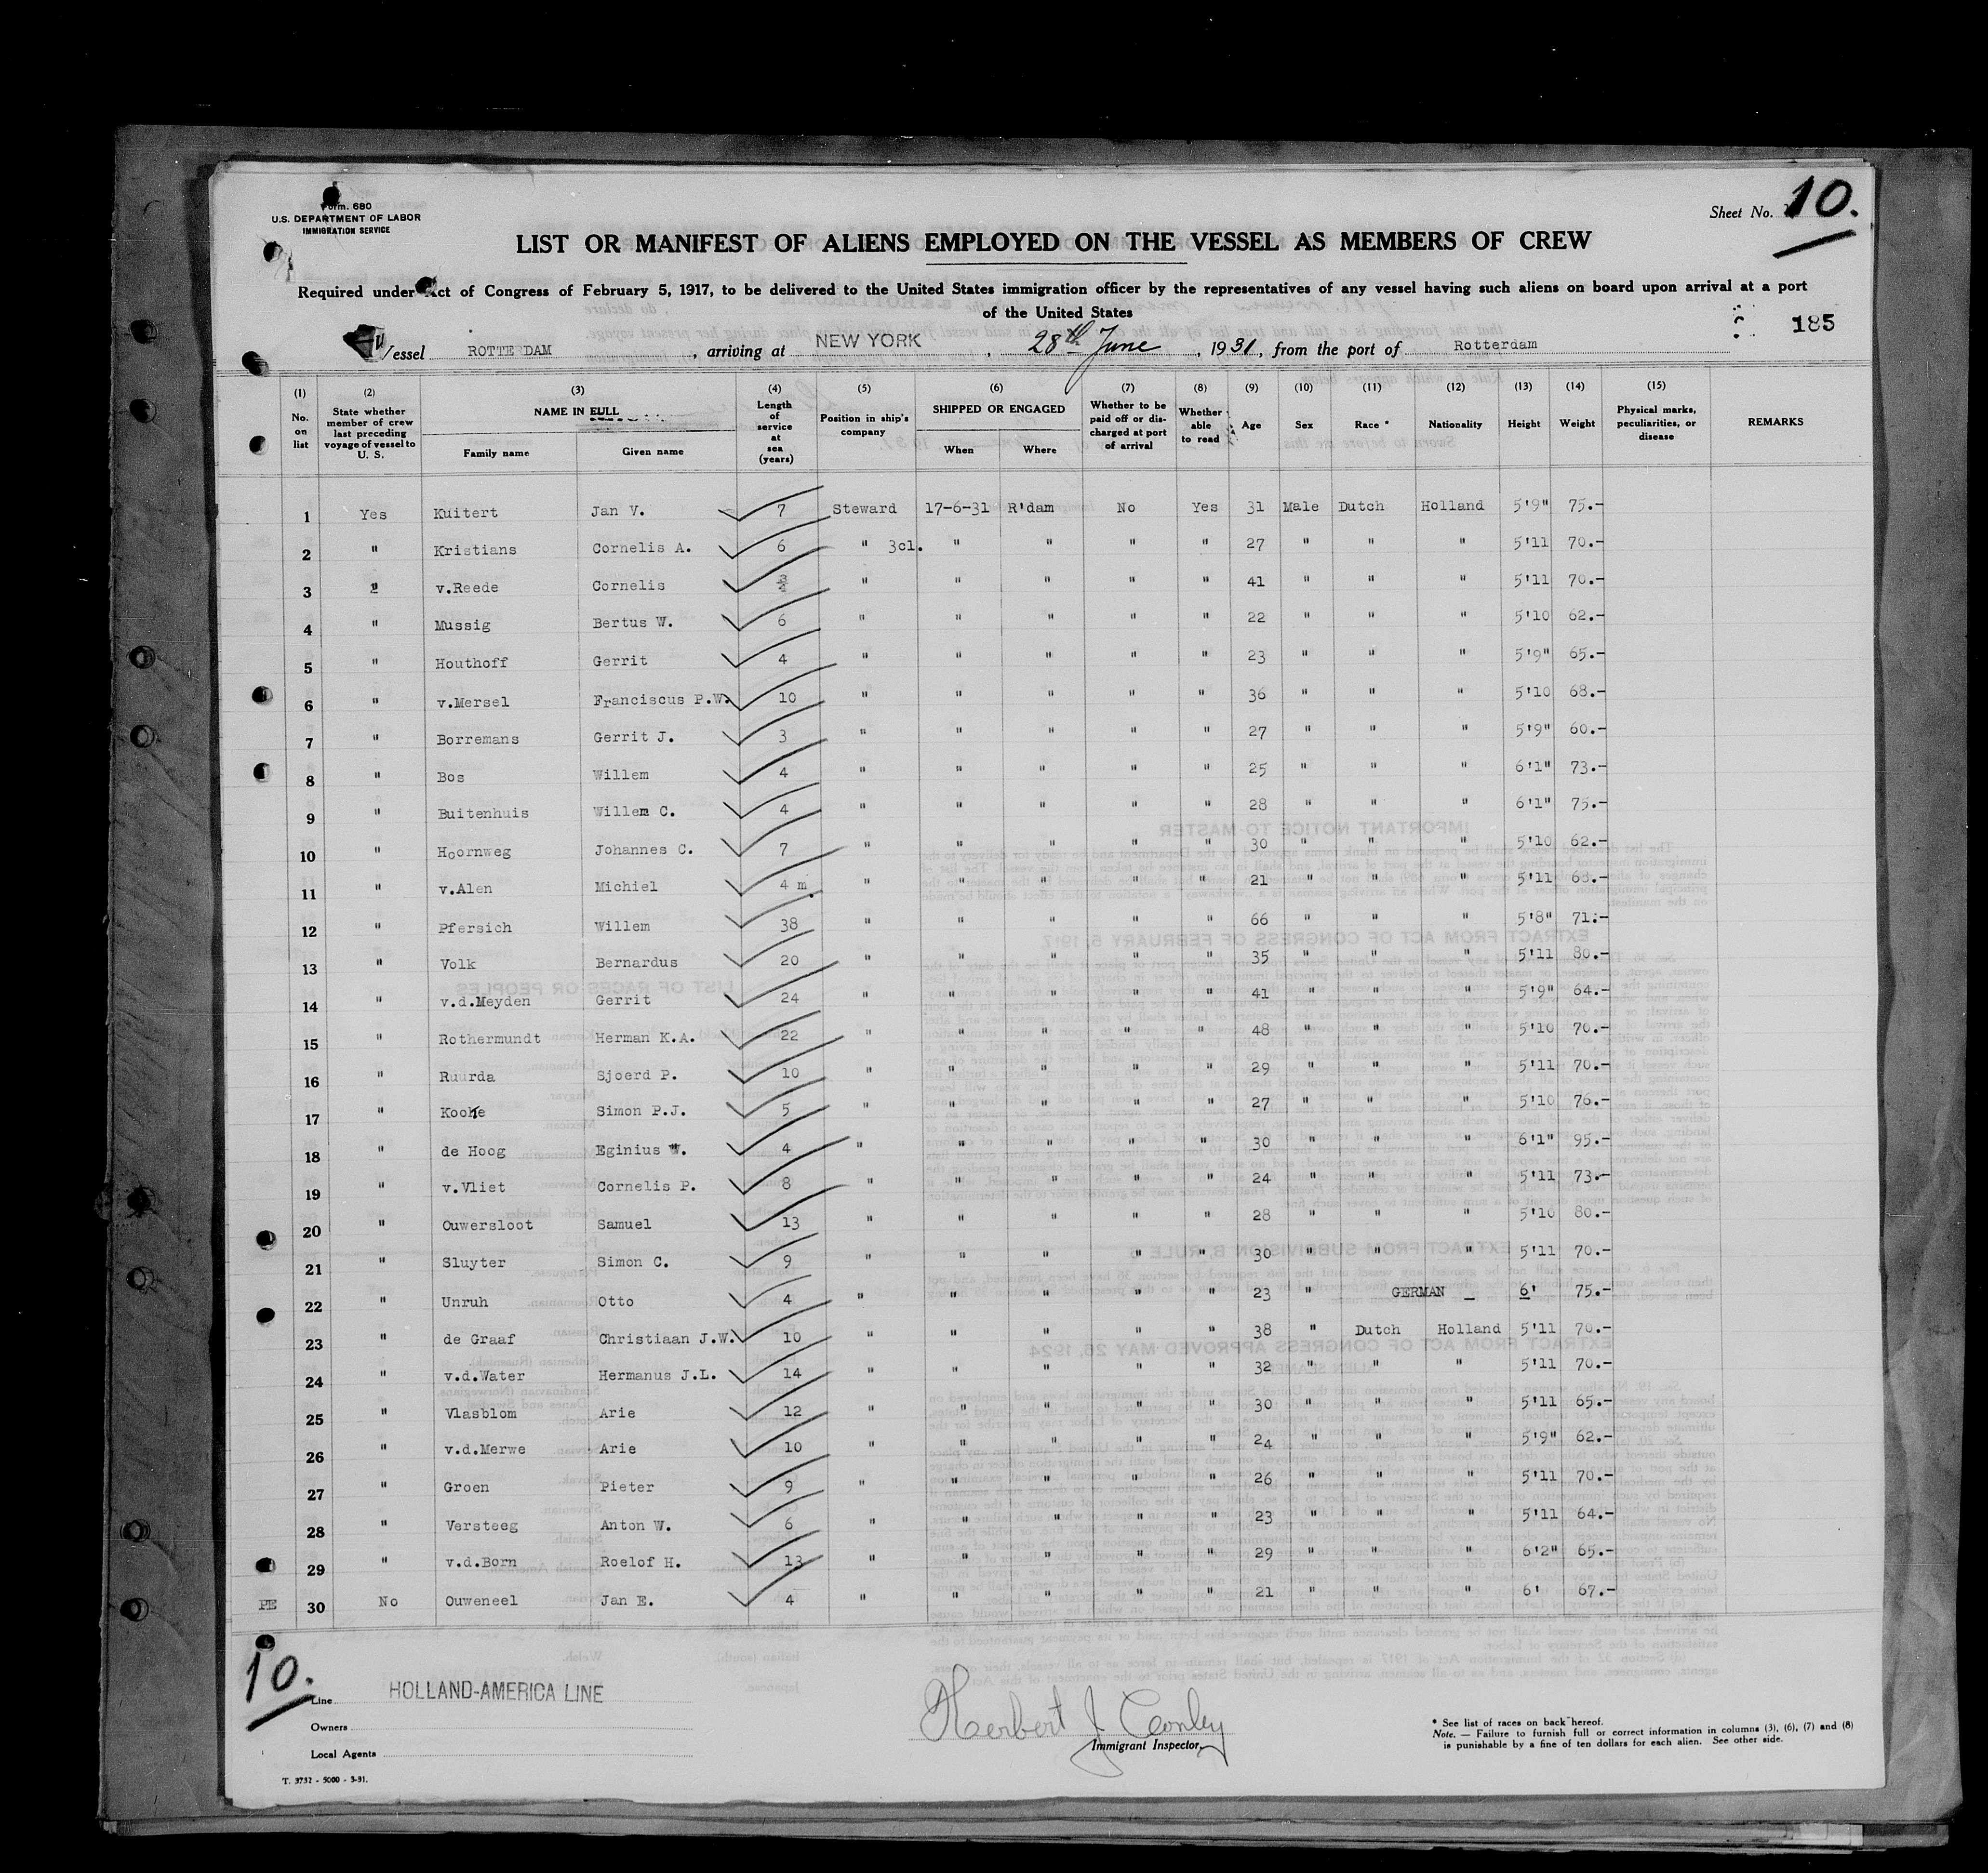 Form. 680
U.S. DEPARTMENT OF LABOR
IMMIGRATION SERVICE
Sheet No. 10.
LIST OR MANIFEST OF ALIENS EMPLOYED ON THE VESSEL AS MEMBERS OF CREW
Required under Act of Congress of February 5, 1917, to be delivered to the United States immigration officer by the representatives of any vessel having such aliens on board upon arrival at a port
of the United States
185
Vessel ROTTERDAM, arriving at NEW YORK, 28th June, 1931, from the port of Rotterdam
(1) No. on list (2) State whether member of crew last preceding voyage of vessel to U. S. (3) NAME IN FULL Family name Given name (4) Length of service at sea (years) (5) Position in ship's company (6) SHIPPED OR ENGAGED When Where (7) Whether to be paid off or discharged at port of arrival (8) Whether able to read (9) Age (10) Sex (11) Race * (12) Nationality (13) Height (14) Weight (15) Physical marks, peculiarities, or disease REMARKS
1 Yes Kuitert Jan V. 7 Steward 17-6-31 R'dam No Yes 31 Male Dutch Holland 5'9" 75.-
2 " Kristians Cornelis A. 6 " 3cl. " " " " 27 " " " 5'11 70.-
3 " v.Reede Cornelis " " " " " 41 " " " 5'11 70.-
4 " Mussig Bertus W. 6 " " " " " 22 " " " 5'10 62.-
5 " Houthoff Gerrit 4 " " " " " 23 " " " 5'9" 65.-
6 " v.Mersel Franciscus P.W. 10 " " " " " 36 " " " 5'10 68.-
7 " Borremans Gerrit J. 3 " " " " " 27 " " " 5'9" 60.-
8 " Bos Willem 4 " " " " " 25 " " " 6'1" 73.-
9 " Buitenhuis Willem C. 4 " " " " " 28 " " " 6'1" 75.-
10 " Hoornweg Johannes C. 7 " " " " " 30 " " " 5'10 62.-
11 " v.Alen Michiel 4 m. " " " " " 21 " " " 5'11 68.-
12 " Pfersich Willem 38 " " " " " 66 " " " 5'8" 71.-
13 " Volk Bernardus 20 " " " " " 35 " " " 5'11 80.-
14 " v.d.Meyden Gerrit 24 " " " " " 41 " " " 5'9" 64.-
15 " Rothermundt Herman K.A. 22 " " " " " 48 " " " 5'10 70.-
16 " Ruurda Sjoerd P. 10 " " " " " 29 " " " 5'11 70.-
17 " Simon P.J. 5 " " " " " 27 " " " 5'10 76.-
18 " de Hoog Eginius W. 4 " " " " " 30 " " " 6'1" 95.-
19 " v.Vliet Cornelis P. 8 " " " " " 24 " " " 5'11 73.-
20 " Ouwersloot Samuel 13 " " " " " 28 " " " 5'10 80.-
21 " Sluyter Simon C. 9 " " " " " 30 " " " 5'11 70.-
22 " Unruh Otto 4 " " " " " 23 " GERMAN _ 6' 75.-
23 " de Graaf Christiaan J.W. 10 " " " " " 38 " Dutch Holland 5'11 70.-
24 " v.d.Water Hermanus J.L. 14 " " " " " 32 " " " 5'11 70.-
25 " Vlasblom Arie 12 " " " " " 30 " " " 5'11 65.-
26 " v.d.Merwe Arie 10 " " " " " 24 " " " 5'9" 62.-
27 " Groen Pieter 9 " " " " " 26 " " " 5'11 70.-
28 " Versteeg Anton W. 6 " " " " " 23 " " " 5'11 64.-
29 " v.d.Born Roelof H. 13 " " " " " 29 " " " 6'2" 65.-
PE 30 No Ouweneel Jan E. 4 " " " " " 21 " " " 6' 67.-
10.
Line HOLLAND-AMERICA LINE
Owners
Local Agents
T. 3732 - 5000 - 3-31.
Herbert J Conley
Immigrant Inspector.
* See list of races on back hereof.
Note. — Failure to furnish full or correct information in columns (3), (6), (7) and (8)
is punishable by a fine of ten dollars for each alien. See other side.